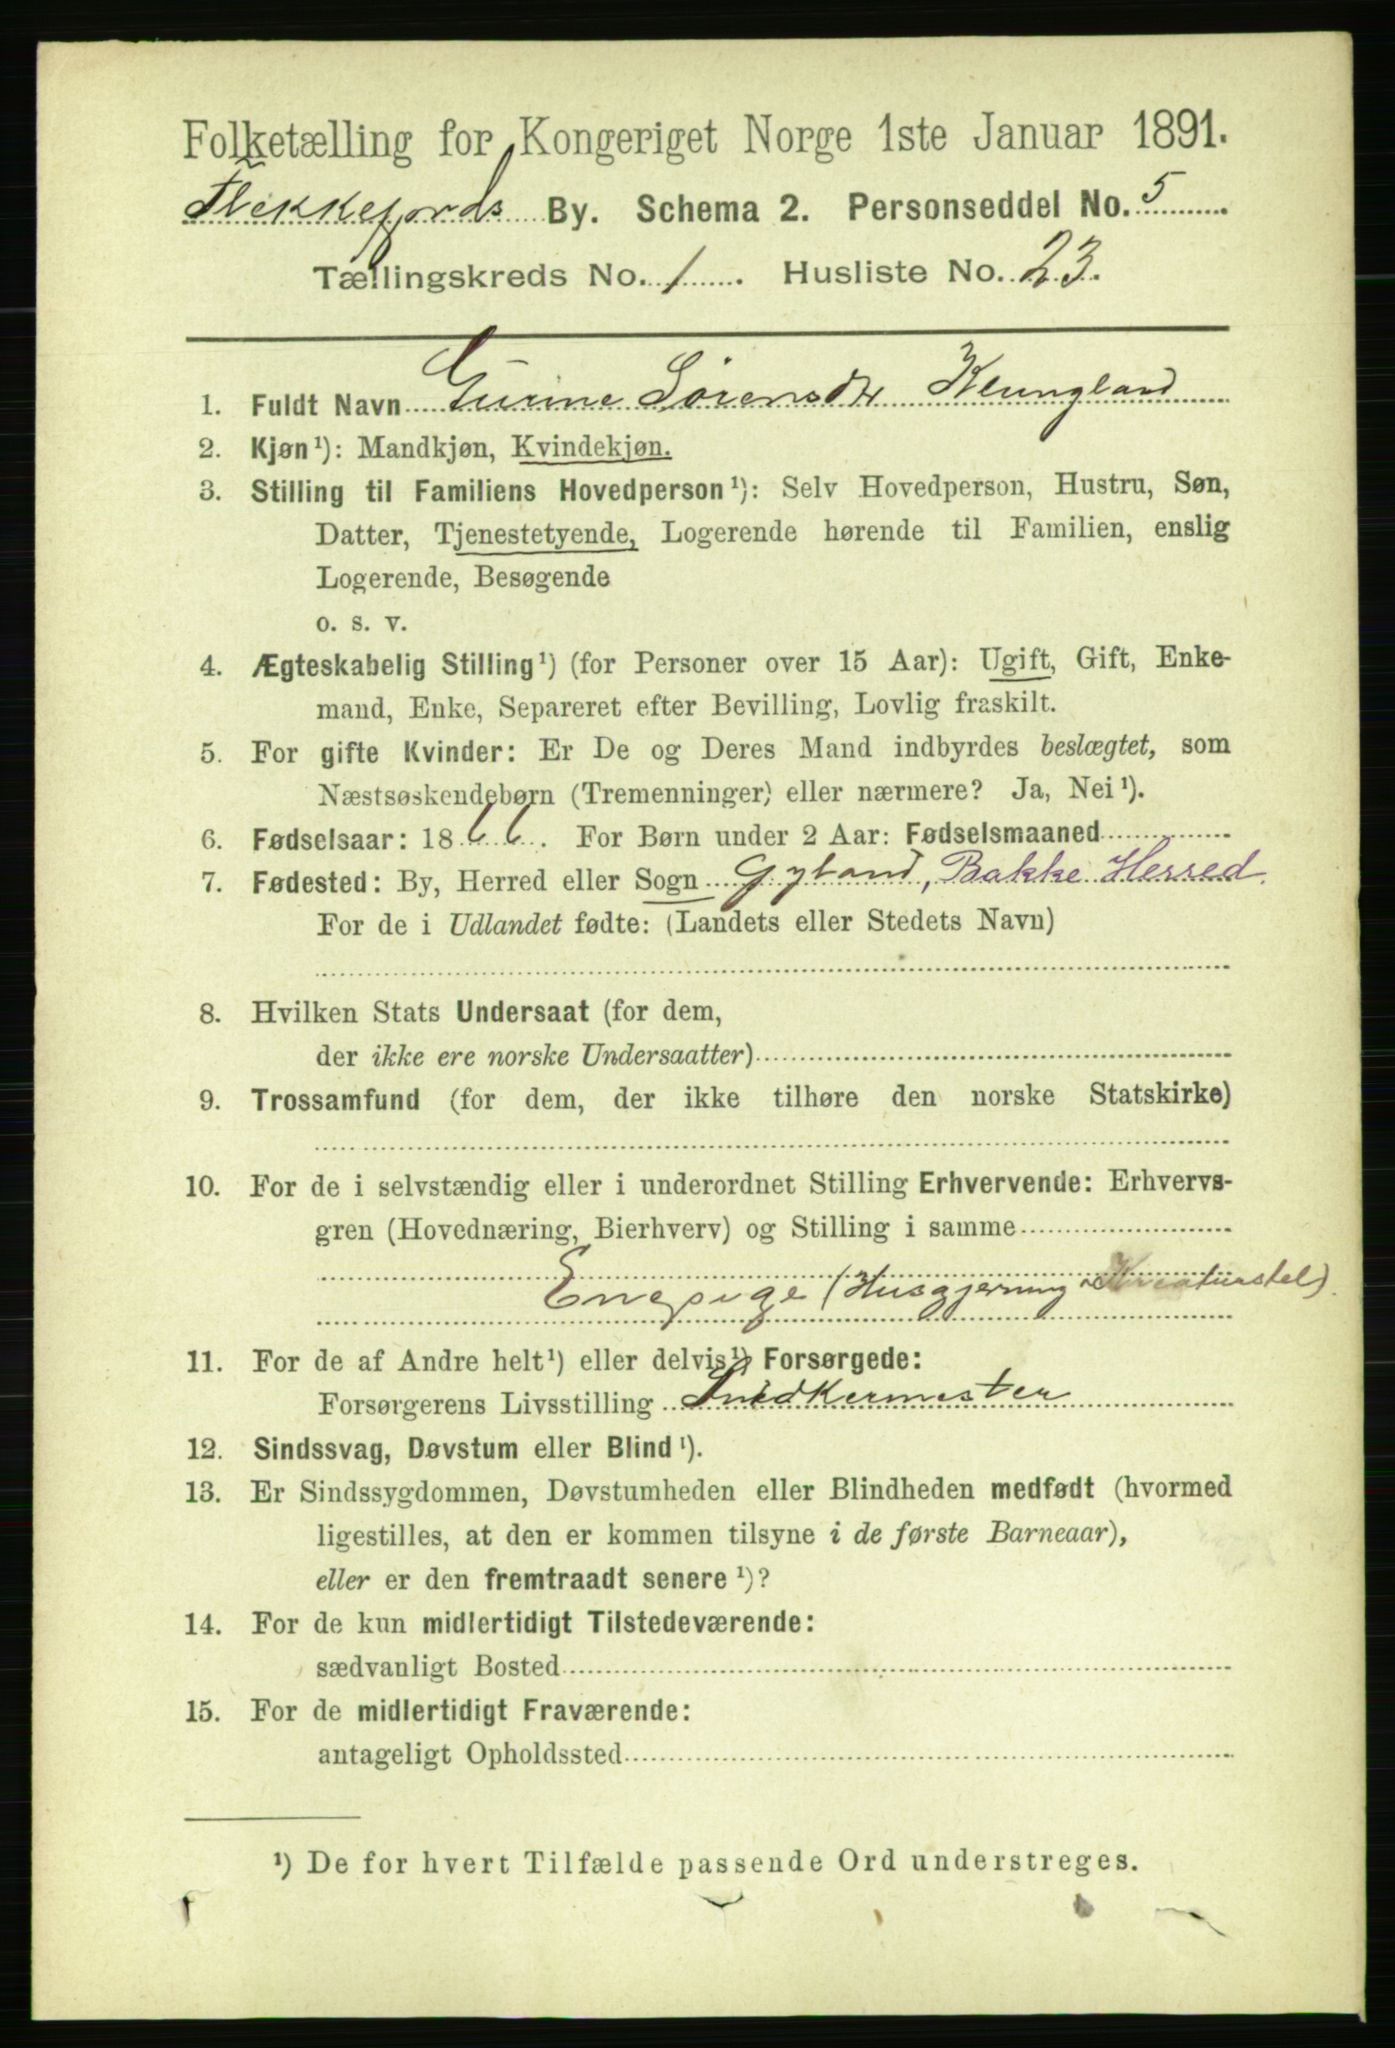 Folketælling for Kongeriget Norge 1ste Januar 1891.
Flekkefjords By. Schema 2. Personseddel No. 5
Tællingskreds No. 1. Husliste No. 23.
1. Fuldt Navn Gurine Sørensdtr Klungland
2. Kjøn ¹): Mandkjøn, Kvindekjøn.
3. Stilling til Familiens Hovedperson ¹): Selv Hovedperson, Hustru, Søn,
Datter, Tjenestetyende, Logerende hørende til Familien, enslig
Logerende, Besøgende
o. s. v.
4. Ægteskabelig Stilling ¹) (for Personer over 15 Aar): Ugift, Gift, Enke-
mand, Enke, Separeret efter Bevilling, Lovlig fraskilt.
5. For gifte Kvinder: Er De og Deres Mand indbyrdes beslægtet, som
Næstsøskendebørn (Tremenninger) eller nærmere? Ja, Nei ¹).
6. Fødselsaar: 1866. For Børn under 2 Aar: Fødselsmaaned
7. Fødested: By, Herred eller Sogn Gyland, Bakke Herred.
For de i Udlandet fødte: (Landets eller Stedets Navn)
8. Hvilken Stats Undersaat (for dem,
der ikke ere norske Undersaatter)
9. Trossamfund (for dem, der ikke tilhøre den norske Statskirke)
10. For de i selvstændig eller i underordnet Stilling Erhvervende: Erhvervs-
gren (Hovednæring, Bierhverv) og Stilling i samme
Enepige (Husgjerning & Kreaturstel).
11. For de af Andre helt ¹) eller delvis ¹) Forsørgede:
Forsørgerens Livsstilling Snedkermester
12. Sindssvag, Døvstum eller Blind ¹).
13. Er Sindssygdommen, Døvstumheden eller Blindheden medfødt (hvormed
ligestilles, at den er kommen tilsyne i de første Barneaar),
eller er den fremtraadt senere ¹)?
14. For de kun midlertidigt Tilstedeværende:
sædvanligt Bosted
15. For de midlertidigt Fraværende:
antageligt Opholdssted
¹) De for hvert Tilfælde passende Ord understreges.